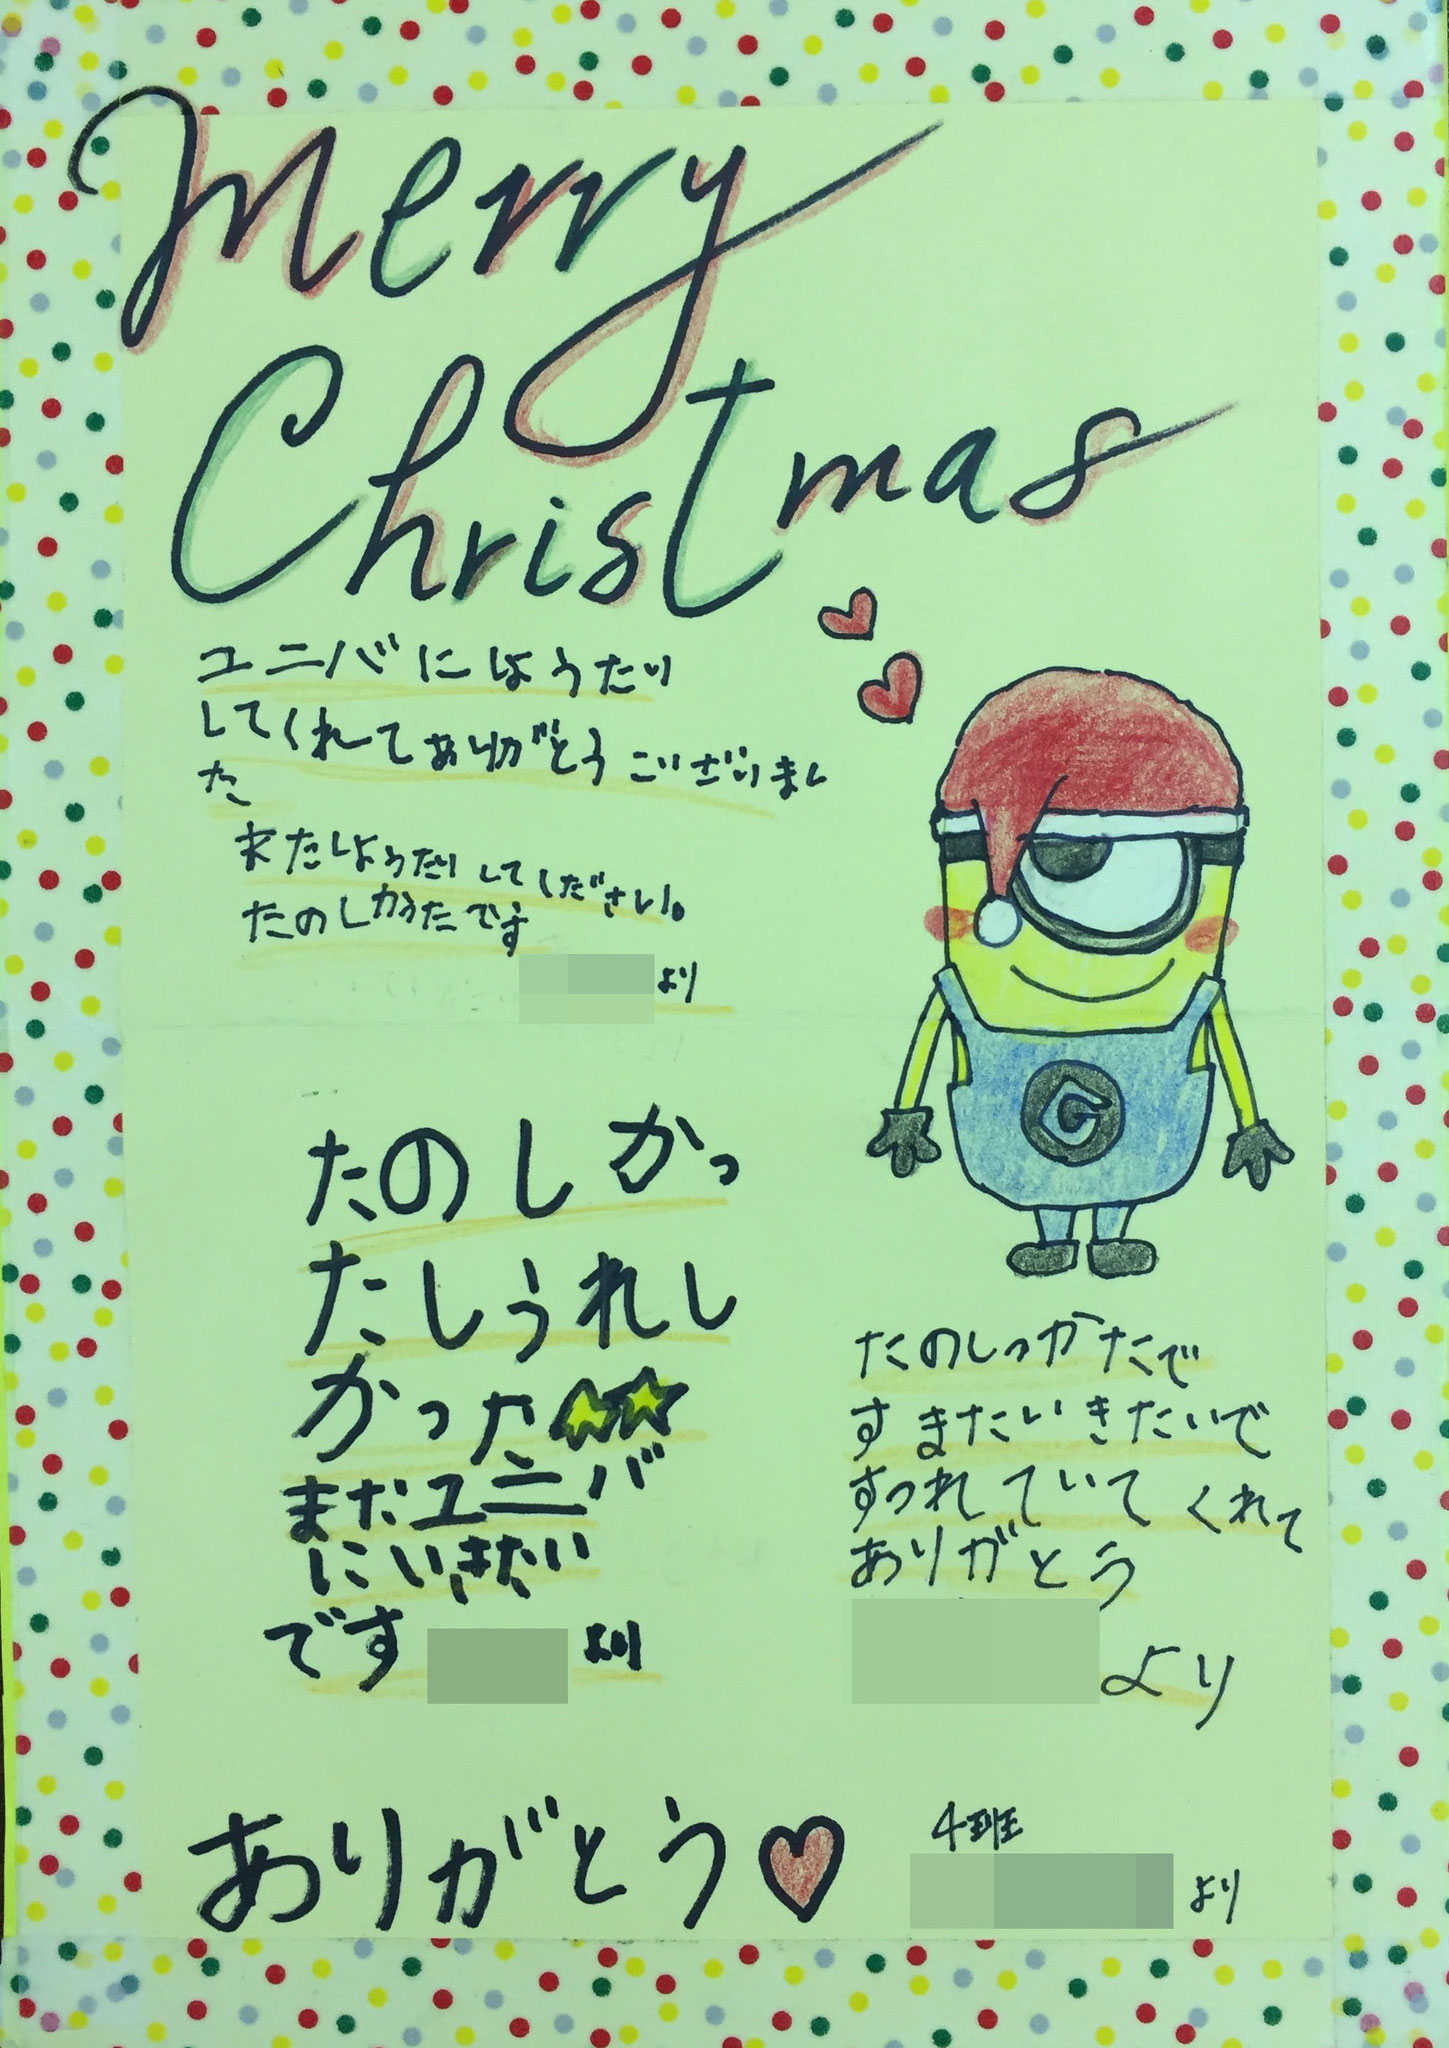 Merry
Christmas
ユニバにしょうたい
してくれてありがとうございまし
た
またしょうたいしてください。
たのしかったです
より
たのしかっ
たしうれし
かった
まだユニバ
にいきたい
です より
たのしっかたで
すまたいきたいで
すつれていてくれて
ありがとう
より
ありがとう
4班
より